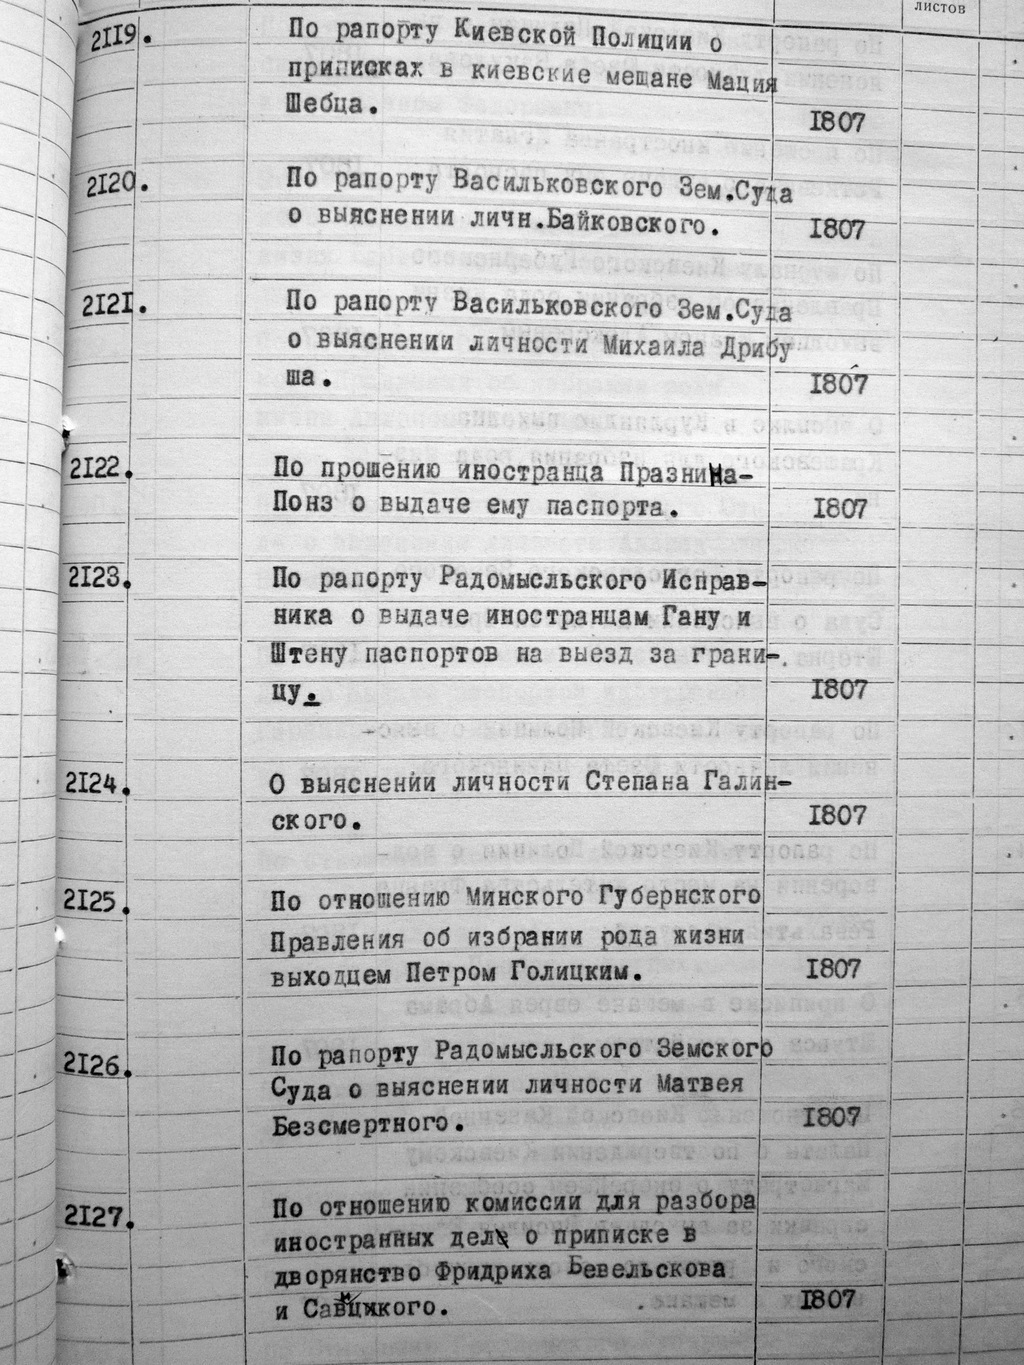 листов
2119. По рапорту Киевской Полиции о
приписках в киевские мещане Мация
Шебца. 1807
2120. По рапорту Васильковского Зем.Суда
о выяснении личн.Байковского. 1807
2121. По рапорту Васильковского Зем.Суда
о выяснении личности Михаила Дрибу
ша. 1807
2122. По прошению иностранца
Понз о выдаче ему паспорта. 1807
2123. По рапорту Радомысльского Исправ-
ника о выдаче иностранцам Гану и
Штену паспортов на выезд за грани-
цу. 1807
2124. О выяснении личности Степана Галин-
ского. 1807
2125. По отношению Минского Губернского
Правления об избрании рода жизни
выходцем Петром Голицким. 1807
2126. По рапорту Радомысльского Земского
Суда о выяснении личности Матвея
Безсмертного. 1807
2127. По отношению комиссии для разбора
иностранных дел о приписке в
дворянство Фридриха Бевельскова
и 1807